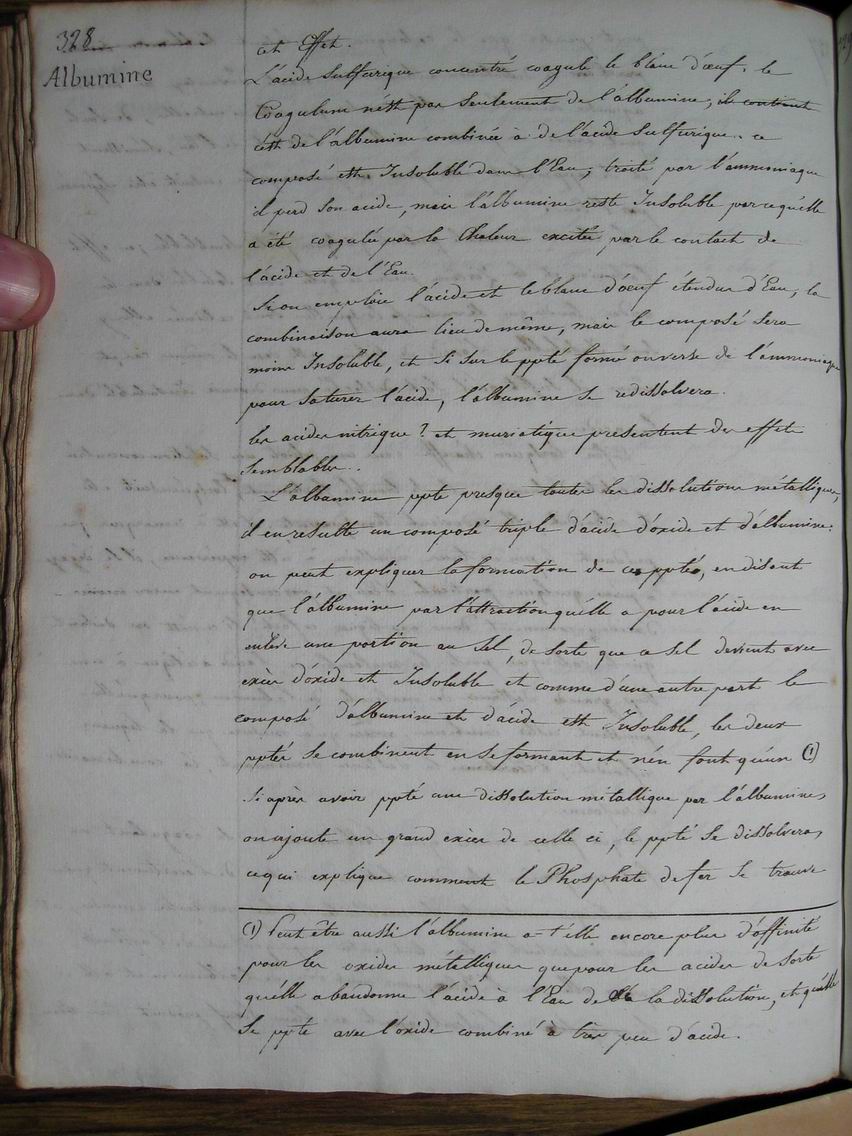 328
Albumine
cet Effet.
L'acide Sulfurique concentré coagule le blanc d'œuf. le
Coagulum n'est pas Seulement de l'albumine, il contient
c'est de l'albumine combinée à de l'acide Sulfurique. ce
composé est Insoluble dans l'Eau, traité par l'ammoniaque
il perd Son acide, mais l'albumine reste Insoluble parcequ'elle
a été coagulée par la Chaleur excitée par le contact de
l'acide et de l'Eau.
Si on emploie l'acide et le blanc d'œuf étendus d'Eau, la
combinaison aura lieu de même, mais le composé Sera
moins Insoluble, et Si Sur le ppté formé on verse de l'ammoniaque
pour Saturer l'acide, l'albumine Se redissolvera.
les acides nitrique ? et muriatique presentent des effets
Semblables.
L'albumine ppte presque toutes les dissolutions métalliques,
il en resulte un composé triple d'acide d'oxide et d'albumine.
on peut expliquer la formation de ces pptés, en disant
que l'albumine par l'attraction qu'elle a pour l'acide en
enlève une portion au Sel, de Sorte que ce Sel devient avec
excès d'oxide et Insoluble et comme d'une autre part le
composé d'albumine et d'acide est Insoluble, les deux
pptés Se combinent en Se formant et n'en font qu'un (1)
Si après avoir ppté une dissolution métallique par l'albumine,
on ajoute un grand excès de celle ci, le ppté Se dissolvera,
ce qui explique comment le Phosphate de fer Se trouve
(1) Peut être aussi l'albumine a-t'elle encore plus d'affinité
pour les oxides métalliques que pour les acides de Sorte
qu'elle abandonne l'acide à l'Eau de la dissolution, et qu'elle
Se ppte avec l'oxide combiné à très peu d'acide.